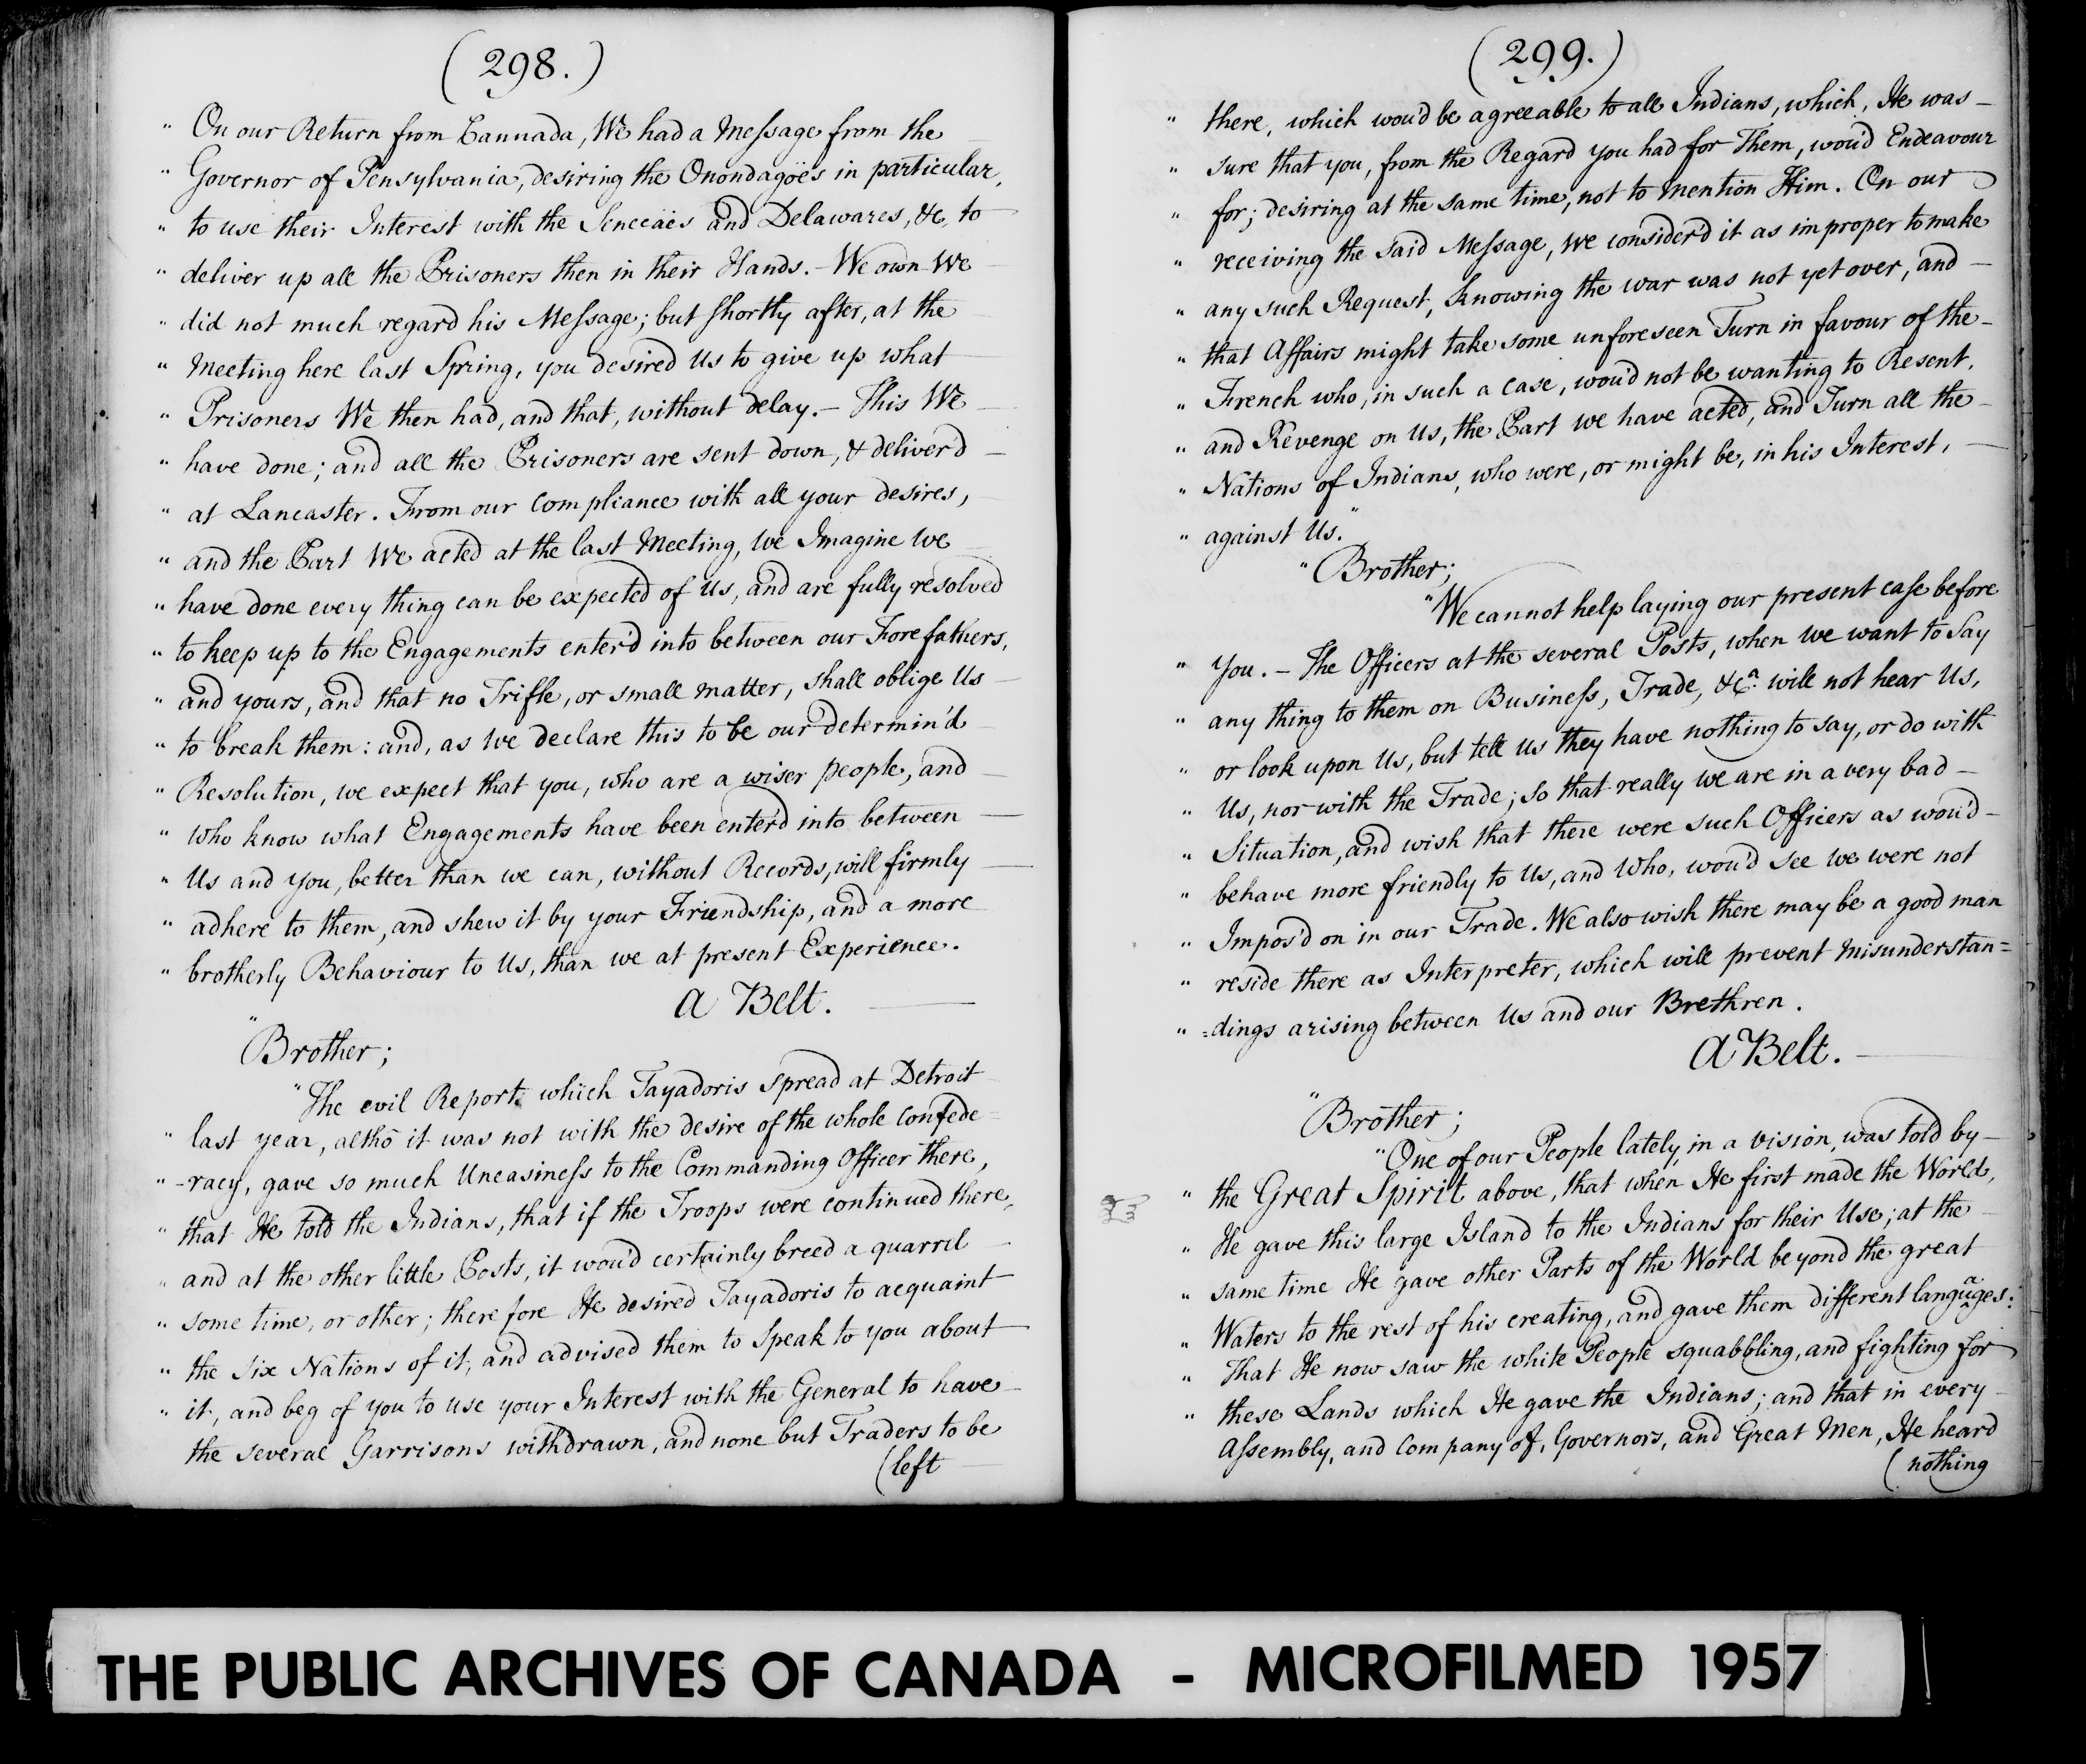 (298.)
" On our Return from Cannada, We had a Message from the
" Governor of Pensylvania, desiring the Onondagoës in particular,
" to use their Interest with the Senecäes and Delawares, &c, to
" deliver up all the Prisoners then in their Hands. - We own We
" did not much regard his Message; but shortly after, at the
" Meeting here last Spring, you desired Us to give up what
" Prisoners We then had, and that, without delay. - This We
" have done; and all the Prisoners are sent down, & deliver'd
" at Lancaster. From our Compliance with all your desires,
" and the Part We acted at the last Meeting, We Imagine We
" have done every thing can be expected of Us, and are fully resolved
" to keep up to the Engagements enter'd into between our Forefathers,
" and yours, and that no Trifle, or small matter, shall oblige Us
" to break them: and, as We declare this to be our determin'd
" Resolution, we expect that you, who are a wiser people, and
" who know what Engagements have been enter'd into between
" Us and you, better than we can, without Records, will firmly
" adhere to them, and shew it by your Friendship, and a more
" brotherly Behaviour to Us, than we at present Experience.
A Belt.
" Brother;
" The evil Report which Tayadoris spread at Detroit
" last year, altho it was not with the desire of the whole Confede
" -racy, gave so much Uneasiness to the Commanding Officer there,
" that He told the Indians, that if the Troops were continued there,
" and at the other little Posts, it wou'd certainly breed a quarrel
" some time, or other; therefore He desired Tayadoris to acquaint
" the six Nations of it, and advised them to speak to you about
" it, and beg of you to use your Interest with the General to have
the several Garrisons withdrawn, and none but Traders to be
(left
(299.)
" there, which wou'd be agreeable to all Indians, which, He was
" sure that you, from the Regard you had for Them, wou'd Endeavour
" for; desiring at the same time, not to mention Him. On our
" receiving the said Message, we consider'd it as improper to make
" any such Request, knowing the war was not yet over, and
" that Affairs might take some unforeseen Turn in favour of the
" French who, in such a case, wou'd not be wanting to Resent,
" and Revenge on Us, the Part we have acted, and Turn all the
" Nations of Indians, who were, or might be, in his Interest,
" against Us."
" Brother;
" We cannot help laying our present case before
" You. - The Officers at the several Posts, when we want to say
" any thing to them on Business, Trade, &ca. will not hear Us,
" or look upon Us, but tell us they have nothing to say, or do with
" Us, nor with the Trade; so that really we are in a very bad
" Situation, and wish that there were such Officers as wou'd
" behave more friendly to Us, and Who, wou'd see we were not
" Impos'd on in our Trade. We also wish there may be a good man
" reside there as Interpreter, which will prevent misunderstan=
" =dings arising between Us and our Brethren.
A Belt.
" Brother;
" One of our People lately, in a vision, was told by
" the Great Spirit above, that when He first made the World,
" He gave this large Island to the Indians for their Use; at the
" same time He gave other Parts of the World beyond the great
" Waters to the rest of his creating, and gave them different languages:
" That He now saw the white People squabbling, and fighting for
" these Lands which He gave the Indians; and that in every
Assembly, and Company of, Governors, and Great Men, He heard
(nothing
THE PUBLIC ARCHIVES OF CANADA - MICROFILMED 1957